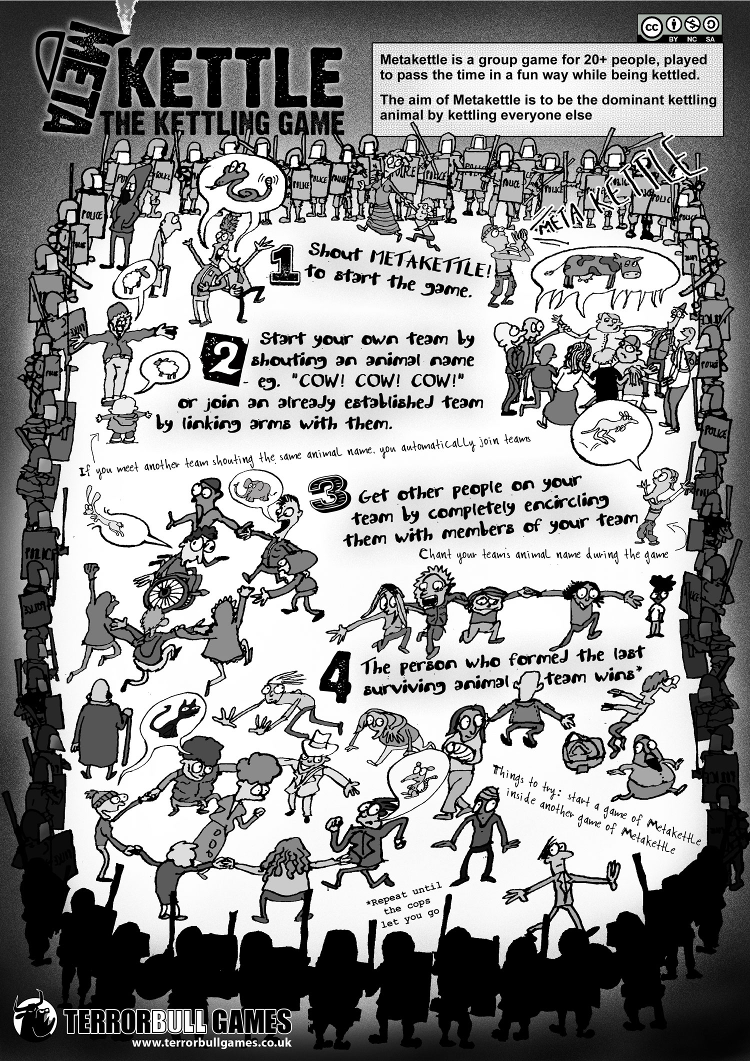 META
KETTLE
THE KETTLING GAME
CC BY NC SA
Metakettle is a group game for 20+ people, played
to pass the time in a fun way while being kettled.
The aim of Metakettle is to be the dominant kettling
animal by kettling everyone else
META KETTLE
1 Shout METAKETTLE!
to start the game.
2 Start your own team by
shouting an animal name
- eg. "COW! COW! COW!"
or join an already established team
by linking arms with them.
If you meet another team shouting the same animal name, you automatically join teams
3 Get other people on your
team by completely encircling
them with members of your team
Chant your team's animal name during the game
4 The person who formed the last
surviving animal team wins*
Things to try: start a game of Metakettle
inside another game of Metakettle
*Repeat until
the cops
let you go
POLICE
POLICE
POLICE
POLICE
POLICE
POLICE
TERRORBULL GAMES
www.terrorbullgames.co.uk